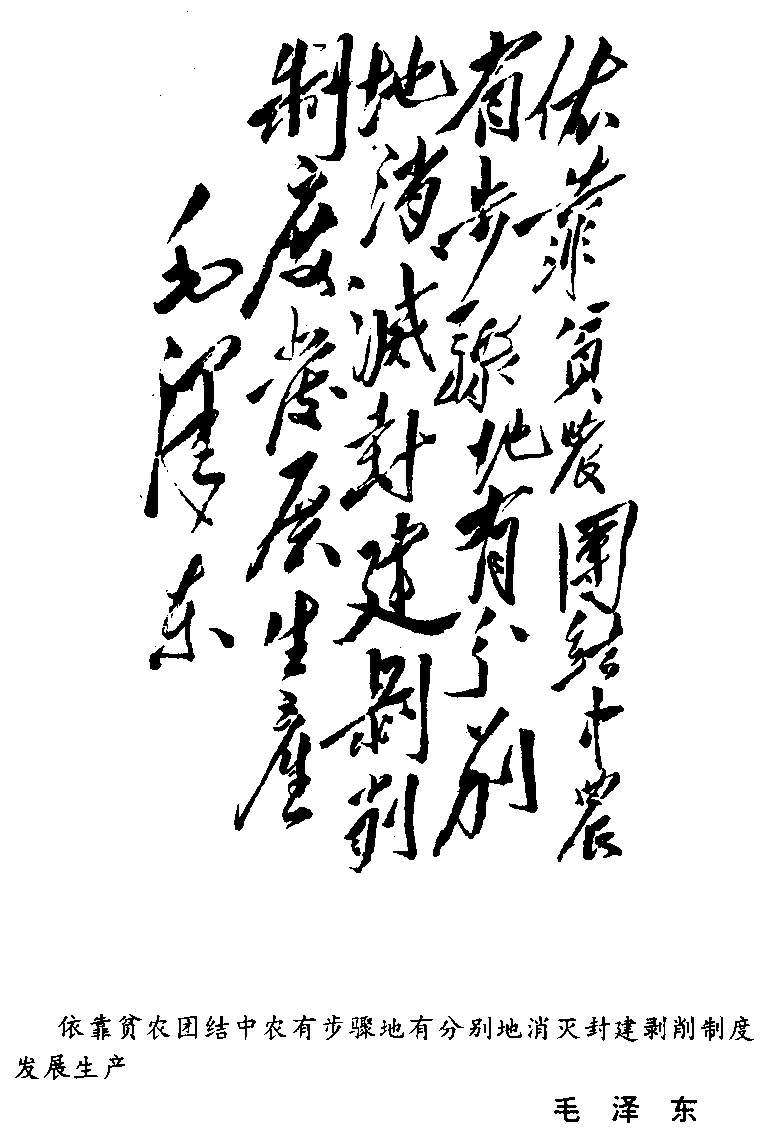 依靠貧農團結中農
有步驟地有分別
地消滅封建剝削
制度發展生產
毛澤东
依靠贫农团结中农有步骤地有分别地消灭封建剥削制度
发展生产
毛 泽 东